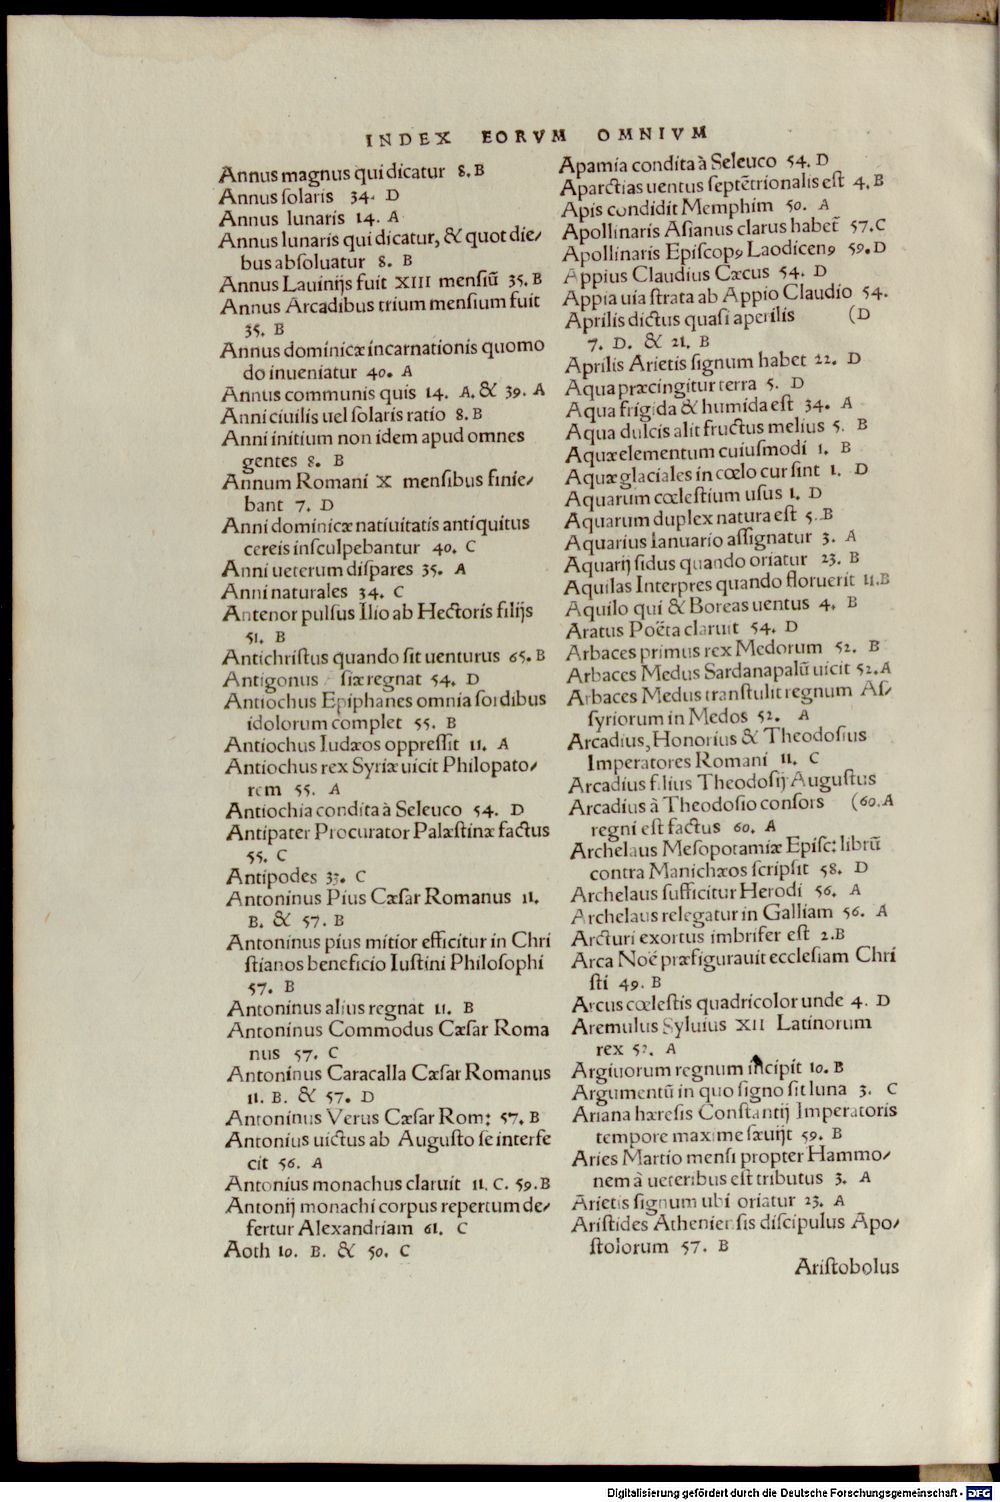 INDEX EORVM OMNIVM
Annus magnus qui dicatur 8. B
Annus ſolaris 34. D
Annus lunaris 14. A
Annus lunaris qui dicatur, & quot die/
bus abſoluatur 8. B
Annus Lauinijs fuit XIII menſiū 35. B
Annus Arcadibus trium menſium fuit
35. B
Annus dominicæ incarnationis quomo
do inueniatur 40. A
Annus communis quis 14. A. & 39. A
Anni ciuilis uel ſolaris ratio 8. B
Anni initium non idem apud omnes
gentes 8. B
Annum Romani X menſibus finie/
bant 7. D
Anni dominicæ natiuitatis antiquitus
cereis inſculpebantur 40. C
Anni ueterum diſpares 35. A
Anni naturales 34. C
Antenor pulſus Ilio ab Hectoris filijs
51. B
Antichriſtus quando ſit uenturus 65. B
Antigonus ſiæ regnat 54. D
Antiochus Epiphanes omnia ſordibus
idolorum complet 55. B
Antiochus Iudæos oppreſſit 11. A
Antiochus rex Syriæ uicit Philopato/
rem 55. A
Antiochia condita à Seleuco 54. D
Antipater Procurator Palæſtinæ factus
55. C
Antipodes 33. C
Antoninus Pius Cæſar Romanus 11.
B. & 57. B
Antoninus pius mitior efficitur in Chri
ſtianos beneficio Iuſtini Philoſophi
57. B
Antoninus alius regnat 11. B
Antoninus Commodus Cæſar Roma
nus 57. C
Antoninus Caracalla Cæſar Romanus
11. B. & 57. D
Antoninus Verus Cæſar Rom: 57. B
Antonius uictus ab Auguſto ſe interfe
cit 56. A
Antonius monachus claruit 11. C. 59. B
Antonij monachi corpus repertum de/
fertur Alexandriam 61. C
Aoth 10. B. & 50. C
Apamia condita à Seleuco 54. D
Aparctias uentus ſeptētrionalis eſt 4. B
Apis condidit Memphim 50. A
Apollinaris Aſianus clarus habet̄ 57. C
Apollinaris Epiſcopꝰ Laodicenꝰ 59. D
Appius Claudius Cæcus 54. D
Appia uia ſtrata ab Appio Claudio 54.
Aprilis dictus quaſi aperilis (D
7. D. & 21. B
Aprilis Arietis ſignum habet 22. D
Aqua præcingitur terra 5. D
Aqua frigida & humida eſt 34. A
Aqua dulcis alit fructus melius 5. B
Aquæ elementum cuiuſmodi 1. B
Aquæ glaciales in cœlo cur ſint 1. D
Aquarum cœleſtium uſus 1. D
Aquarum duplex natura eſt 5. B
Aquarius Ianuario aſſignatur 3. A
Aquarij ſidus quando oriatur 23. B
Aquilas Interpres quando floruerit 11. B
Aquilo qui & Boreas uentus 4. B
Aratus Poëta claruit 54. D
Arbaces primus rex Medorum 52. B
Arbaces Medus Sardanapalū uicit 52. A
Arbaces Medus tranſtulit regnum Aſ/
ſyriorum in Medos 52. A
Arcadius, Honorius & Theodoſius
Imperatores Romani 11. C
Arcadius filius Theodoſij Auguſtus
Arcadius à Theodoſio conſors (60. A
regni eſt factus 60. A
Archelaus Meſopotamiæ Epiſc: librū
contra Manichæos ſcripſit 58. D
Archelaus ſufficitur Herodi 56. A
Archelaus relegatur in Galliam 56. A
Arcturi exortus imbrifer eſt 2. B
Arca Noë præfigurauit eccleſiam Chri
ſti 49. B
Arcus cœleſtis quadricolor unde 4. D
Aremulus Syluius XII Latinorum
rex 52. A
Argiuorum regnum incipit 10. B
Argumentū in quo ſigno ſit luna 3. C
Ariana hæreſis Conſtantij Imperatoris
tempore maxime ſæuijt 59. B
Aries Martio menſi propter Hammo/
nem à ueteribus eſt tributus 3. A
Arietis ſignum ubi oriatur 23. A
Ariſtides Athenienſis diſcipulus Apo/
ſtolorum 57. B
Ariſtobolus
Digitalisierung gefördert durch die Deutsche Forschungsgemeinschaft - DFG